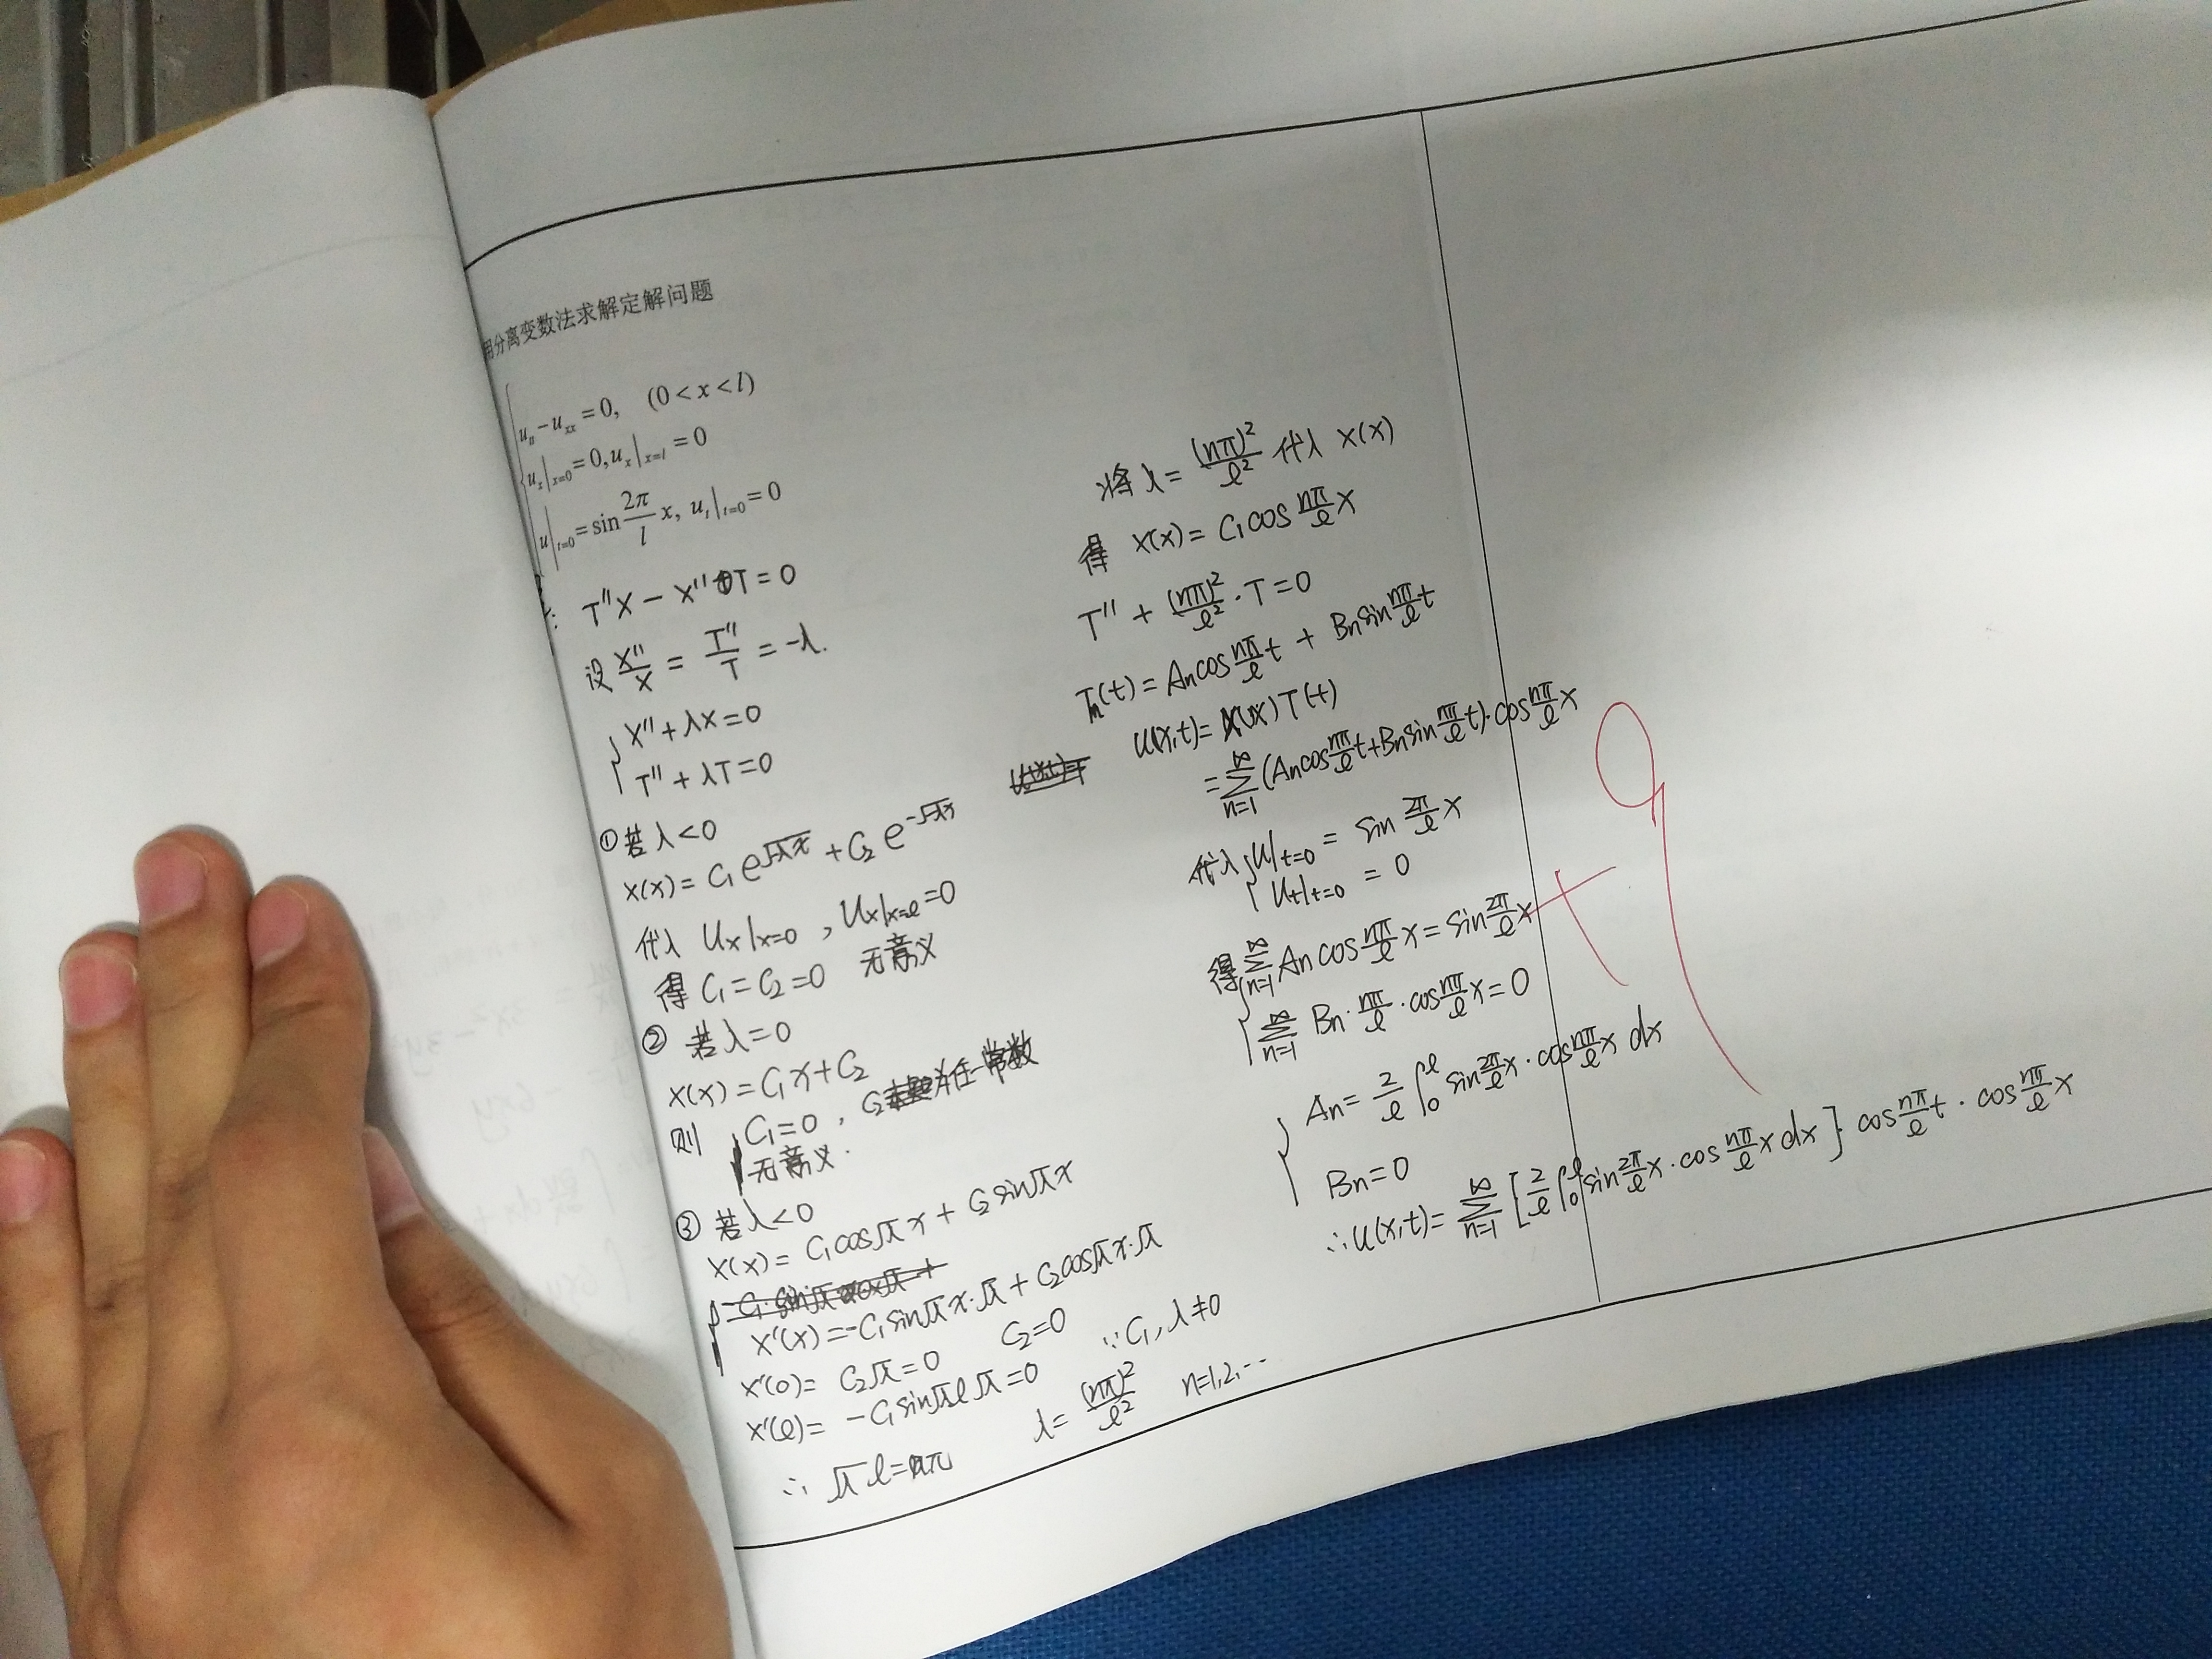 用分离变数法求解定解问题
u_tt − u_xx = 0, (0 < x < l)
u_x|x=0 = 0, u_x|x=l = 0
u|t=0 = sin 2π/l x, u_t|t=0 = 0
T''X − X''T = 0
设 X''/X = T''/T = −λ.
X'' + λX = 0
T'' + λT = 0
①若 λ<0
X(x) = C₁e^√−λx + C₂e^−√−λx
代入 Ux|x=0 , Ux|x=l =0
得 C₁=C₂=0 无意义
② 若 λ=0
X(x) = C₁x+C₂
则 C₁=0 ,
无意义.
③ 若 λ<0
X(x) = C₁cos√λx + C₂sin√λx
X'(x) = −C₁sin√λx·√λ + C₂cos√λx·√λ
X'(0) = C₂√λ=0 C₂=0
X'(l) = −C₁sin√λl √λ=0 ∵C₁,λ≠0
∴ √λ l=nπ λ= (nπ)²/l² n=1,2,··
将 λ= (nπ)²/l² 代入 X(x)
得 X(x)= C₁cos nπ/l x
T'' + (nπ)²/l² · T=0
Tn(t) = An cos nπ/l t + Bn sin nπ/l t
U(x,t) = X(x)T(t)
= ∑n=1^∞ (An cos nπ/l t + Bn sin nπ/l t)·cos nπ/l x
代入 U|t=0 = sin 2π/l x
Ut|t=0 = 0
得 ∑n=1^∞ An cos nπ/l x = sin 2π/l x
∑n=1^∞ Bn· nπ/l ·cos nπ/l x=0
An= 2/l ∫0^l sin 2π/l x · cos nπ/l x dx
Bn=0
∴U(x,t)= ∑n=1^∞ [2/l ∫0^l sin 2π/l x · cos nπ/l x dx] · cos nπ/l t · cos nπ/l x
+9